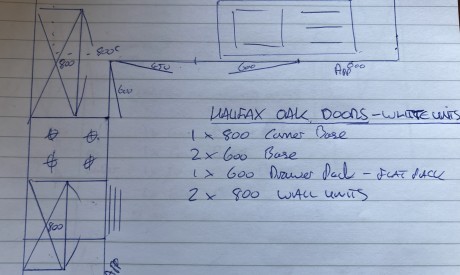 800c
800
600
600
APP 800
600
HALIFAX OAK DOORS - WHITE UNITS
1 x 800 Corner Base
2 x 600 Base
1 x 600 Drawer Pack - FLAT PACK
2 x 800 WALL UNITS
800
APP